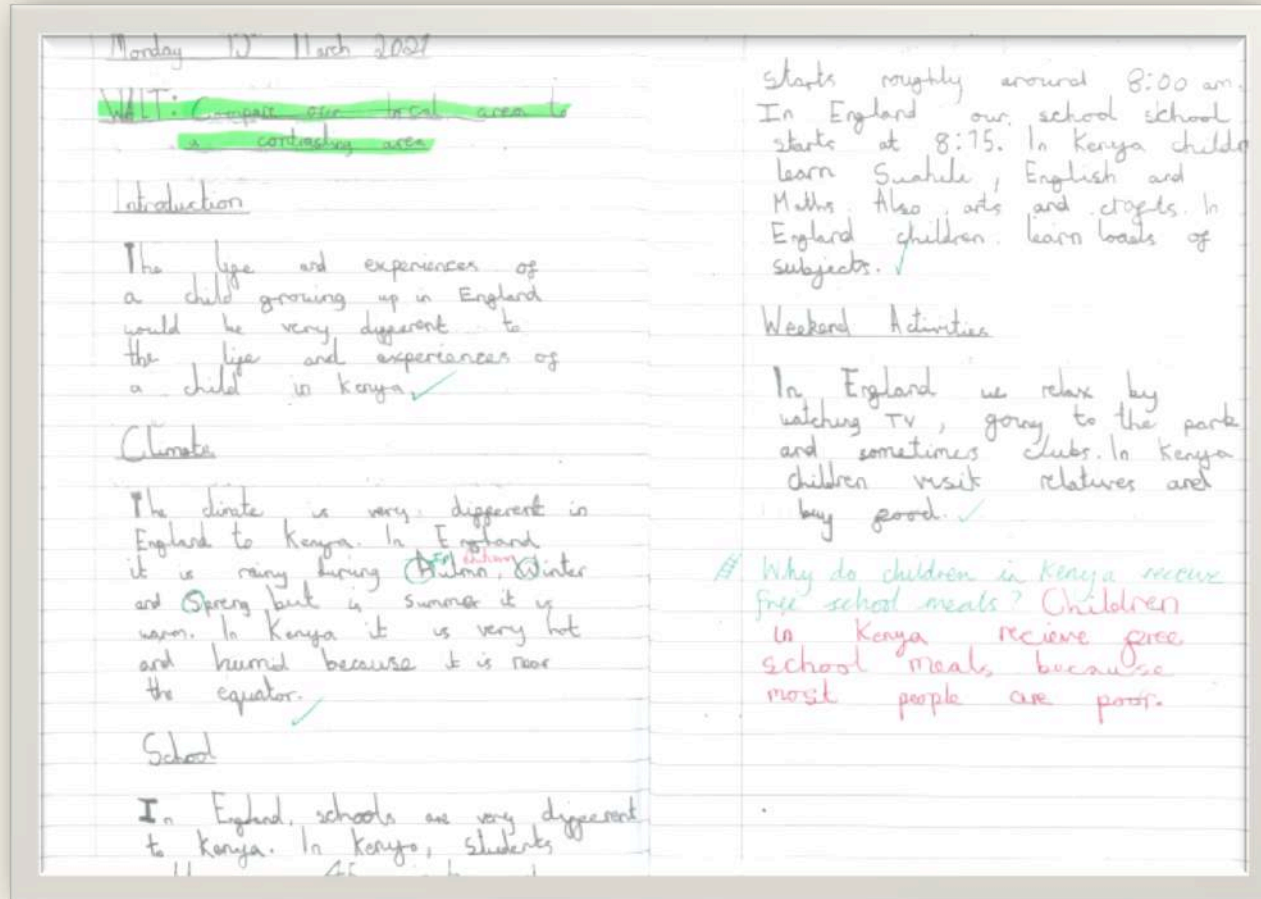 Monday 15th March 2021
WALT: Compare our local area to
a contrasting area
Introduction
The life and experiences of
a child growing up in England
would be very different to
the life and experiences of
a child in Kenya.
Climate
The climate is very different in
England to Kenya. In England
it is rainy during Autmn, Winter
and Spreng but in summer it is
warm. In Kenya it is very hot
and humid because it is near
the equator.
School
In England, schools are very different
to Kenya. In Kenya, students
starts roughly around 8:00 am.
In England our school school
starts at 8:75. In Kenya childr
learn Suahile, English and
Maths. Also arts and crafts. In
England children learn loads of
subjects.
Weekend Activities
In England we relax by
watching TV, going to the park
and sometimes clubs. In Kenya
children visit relatives and
buy food.
Why do children in Kenya receive
free school meals? Children
in Kenya recieve free
school meals because
most people are poor.